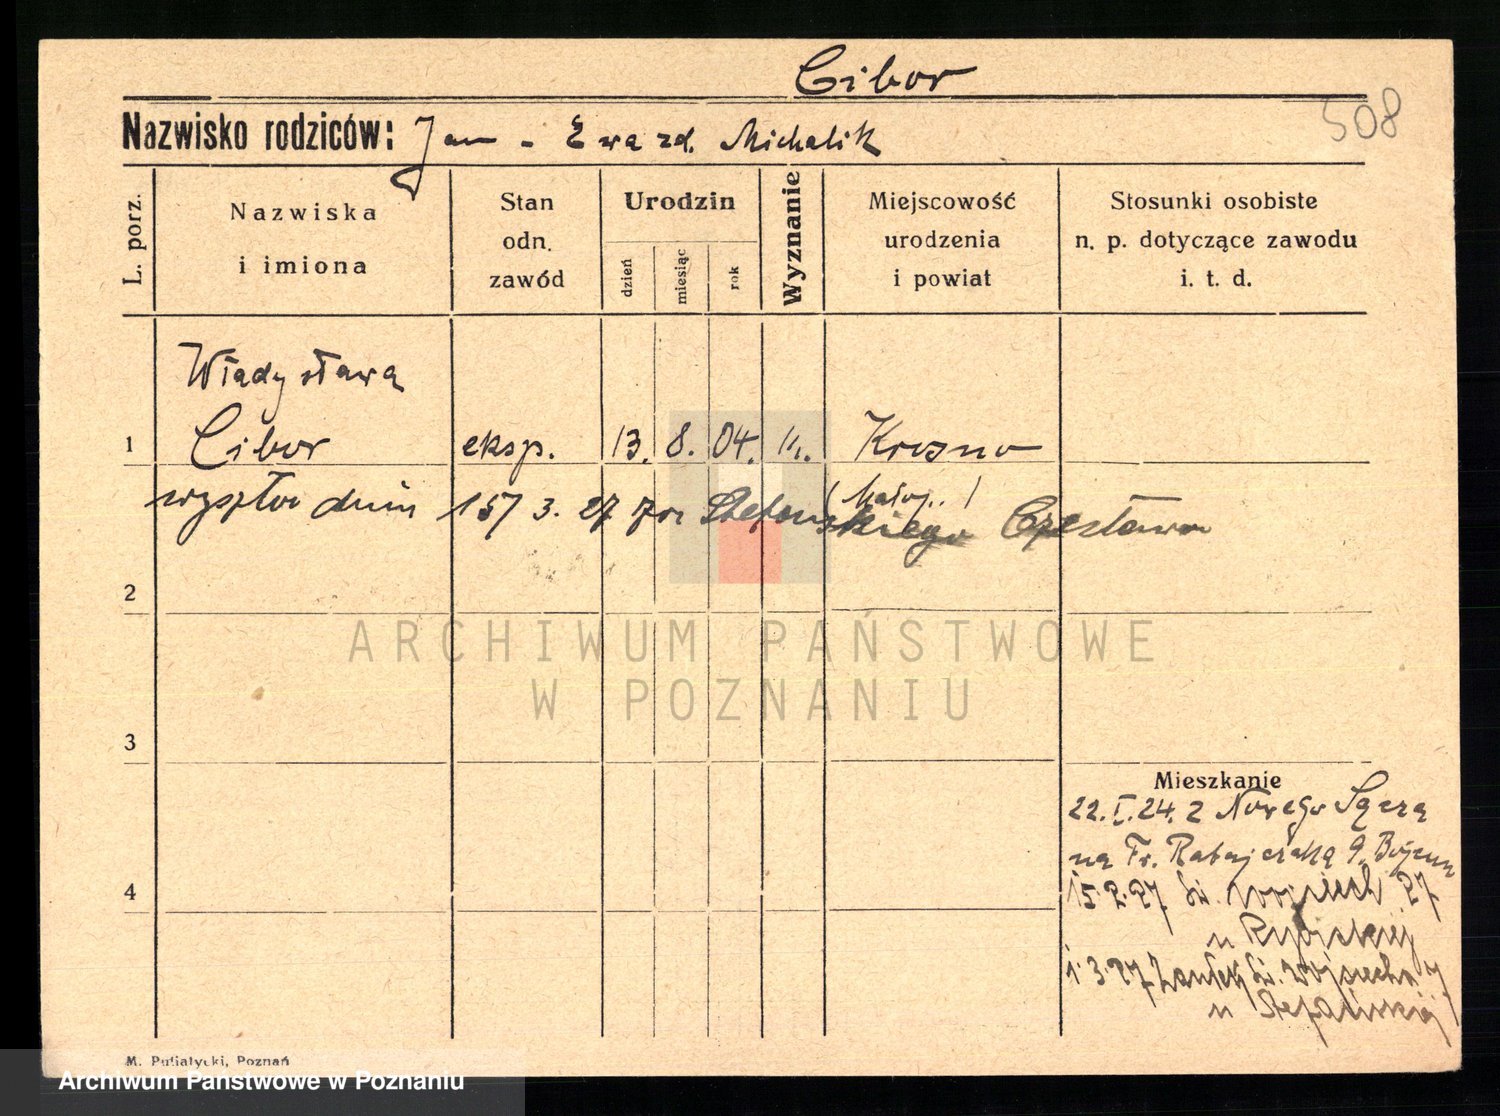 Cibor
508
Nazwisko rodziców: Jan - Ewa zd. Michalik
L. porz.
Nazwiska
i imiona
Stan
odn.
zawód
Urodzin
dzień
miesiąc
rok
Wyznanie
Miejscowość
urodzenia
i powiat
Stosunki osobiste
n. p. dotyczące zawodu
i. t. d.
Władysława
1 Cibor eksp. 13. 8. 04. Krosno
(Małop.)
wyszła dnia 3. 27 za Stefańskiego Czesława
2
3
4
Mieszkanie
22. I. 24. z Nowego Sącza
na Fr. Ratajczaka 9
15. 2. 27 Św. Wojciech 27
u Rybickiej
1. 3. 27 Zaułek Św. Wojciecha
u Stefańskiej
ARCHIWUM PAŃSTWOWE
W POZNANIU
M. Putiatycki, Poznań
Archiwum Państwowe w Poznaniu